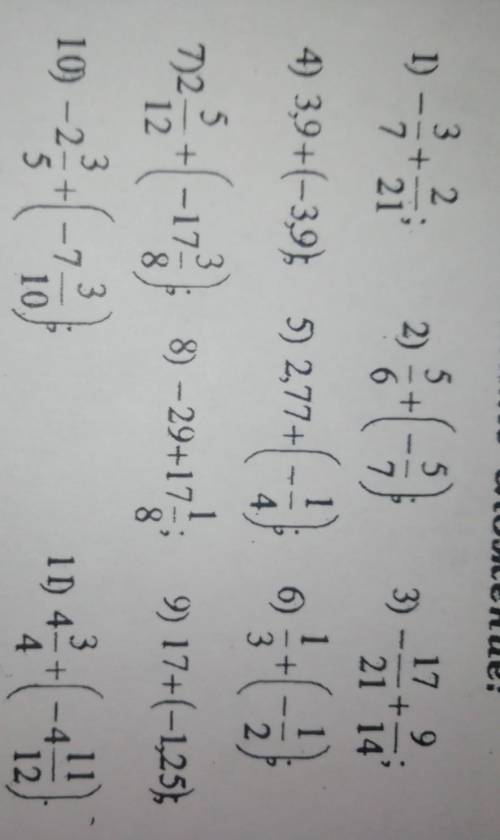 сложение:
1) −3/7 + 2/21; 2) 5/6 + (−5/7); 3) −17/21 + 9/14;
4) 3,9+(−3,9); 5) 2,77+(−1/4); 6) 1/3 + (−1/2);
7) 2 5/12 + (−17 3/8); 8) −29+17 1/8; 9) 17+(−1,25);
10) −2 3/5 + (−7 3/10); 11) 4 3/4 + (−4 11/12).